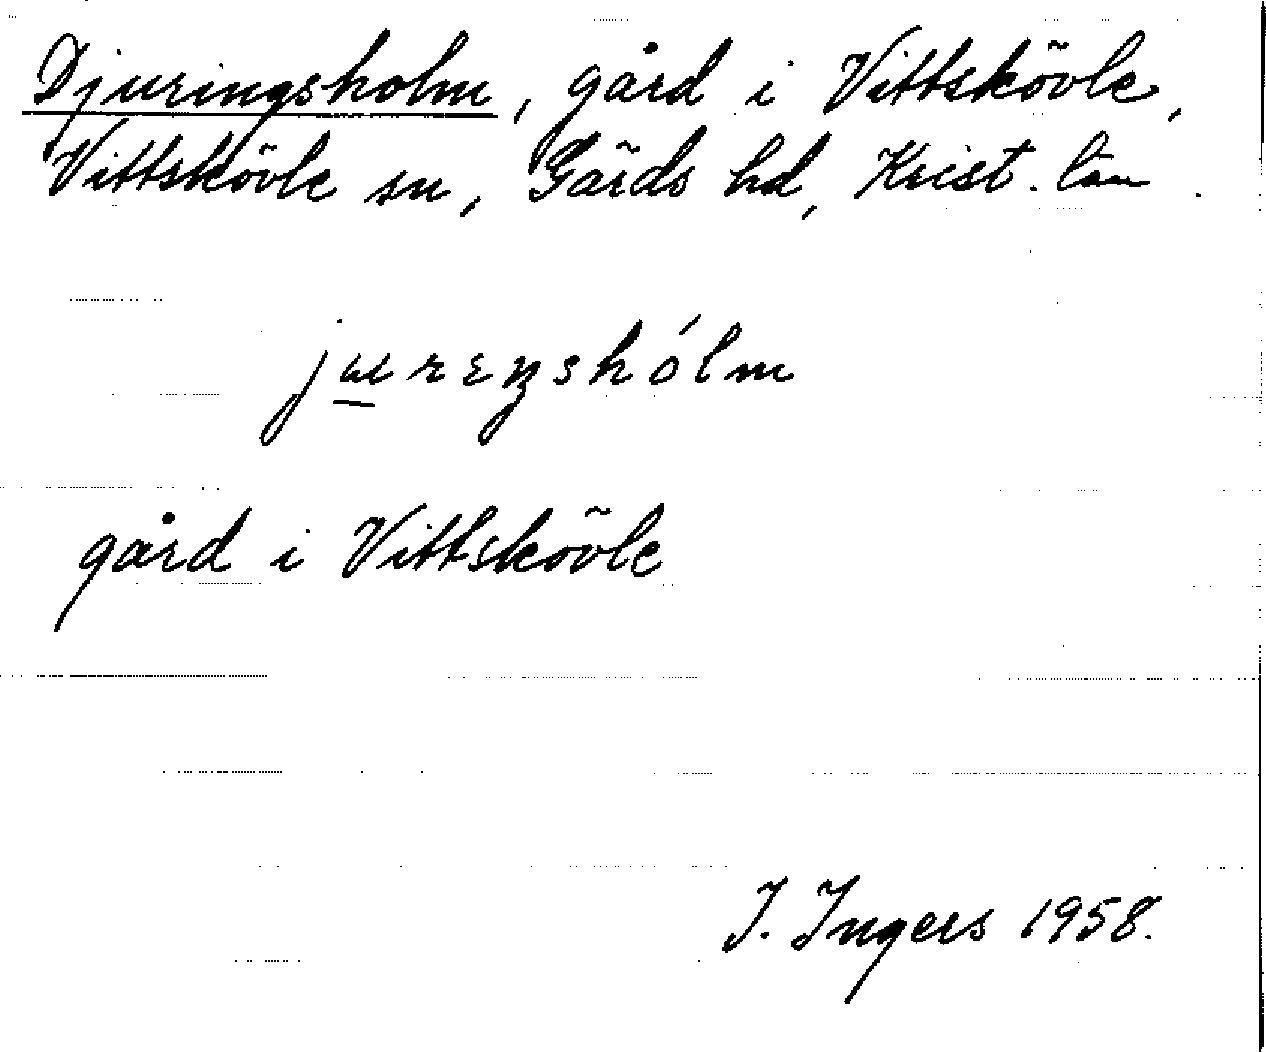 Djuringsholm, gård i Vittskövle,
Vittskövle sn, Gärds hd, Krist. län.
jɯrɛŋshólm
gård i Vittskövle
I. Ingers 1958.